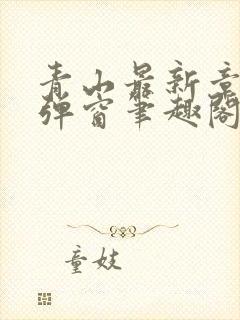 青山最新章
弹窗笔趣阁
童妓